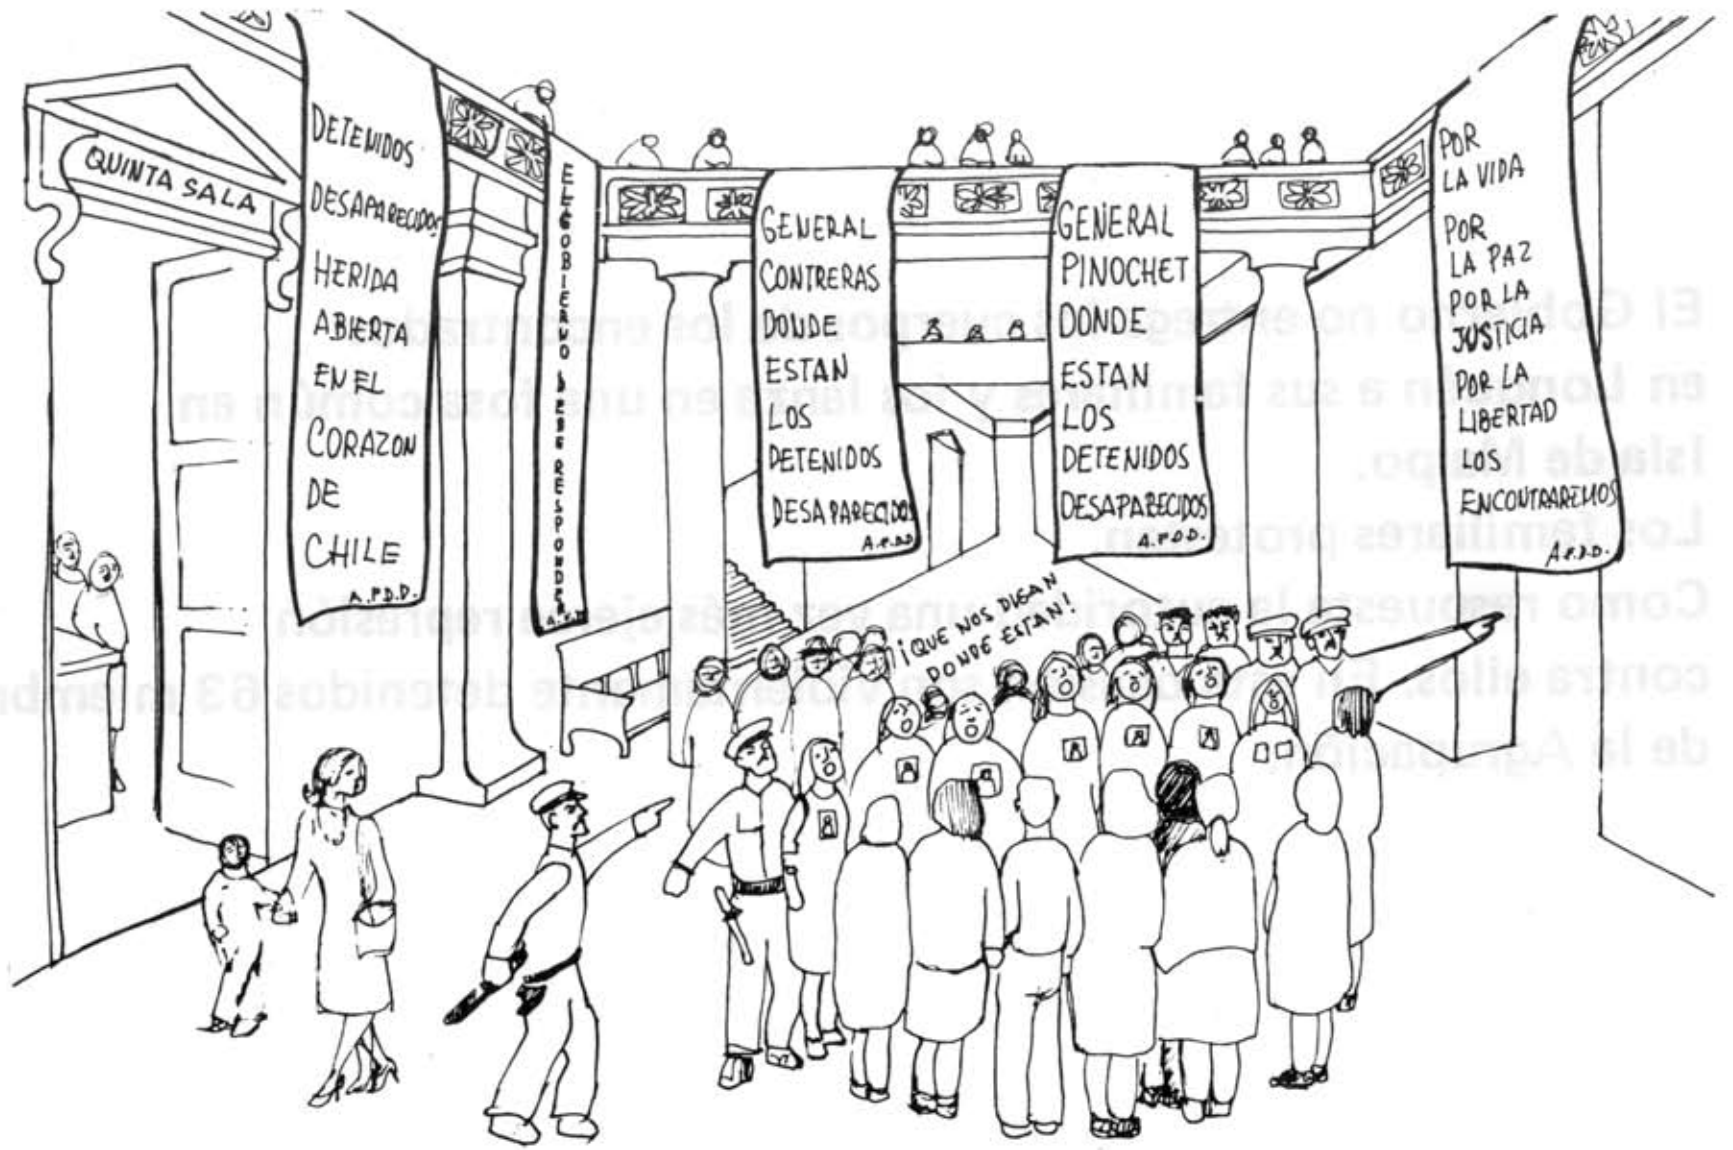 QUINTA SALA
DETENIDOS
DESAPARECIDOS
HERIDA
ABIERTA
EN EL
CORAZON
DE
CHILE
A.F.D.D.
EL GOBIERNO DEBE RESPONDER
GENERAL
CONTRERAS
DONDE
ESTAN
LOS
DETENIDOS
DESAPARECIDOS
A.F.D.D.
GENERAL
PINOCHET
DONDE
ESTAN
LOS
DETENIDOS
DESAPARECIDOS
A.F.D.D.
POR
LA VIDA
POR
LA PAZ
POR LA
JUSTICIA
POR LA
LIBERTAD
LOS
ENCONTRAREMOS
A.F.D.D.
¡QUE NOS DIGAN
DONDE ESTAN!